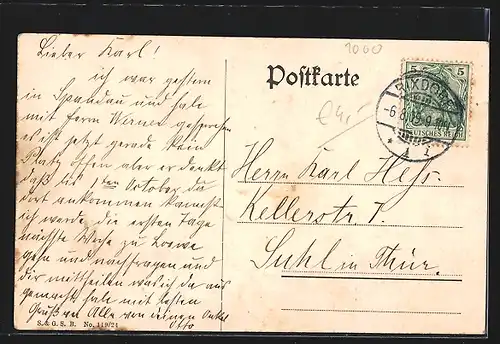 Lieber Karl!
ich war gestern
in Spandau und habe
mit Herrn Werner gesprochen
es ist jetzt gerade kein
Platz offen aber er denkt
daß bis 1ten October du
dort ankommen kannst
ich werde die ersten Tage
nächste Woche zu Loewe
gehn und nachfragen und
dir mittheilen was ich da aus
gemacht habe mit besten
Gruß an Alle von deinen Onkel
Otto
S. & G. S. B. No. 119/24
1060
Postkarte
5 5
RIXDORF
DEUTSCHES REICH
* 1
Herrn Karl Heß.
Kellerstr. 7.
Suhl in Thür.